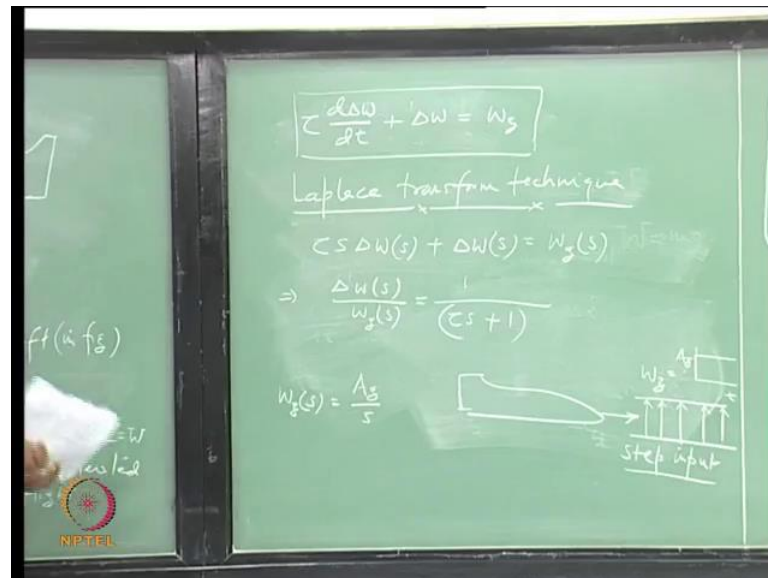 ft (in fig)
= W
τ dΔw/dt + Δw = w_g
Laplace transform technique
τs Δw(s) + Δw(s) = w_g(s)
⇒ Δw(s)/w_g(s) = 1/(τs + 1)
w_g(s) = A_g/s
w_g = A_g
step input
NPTEL